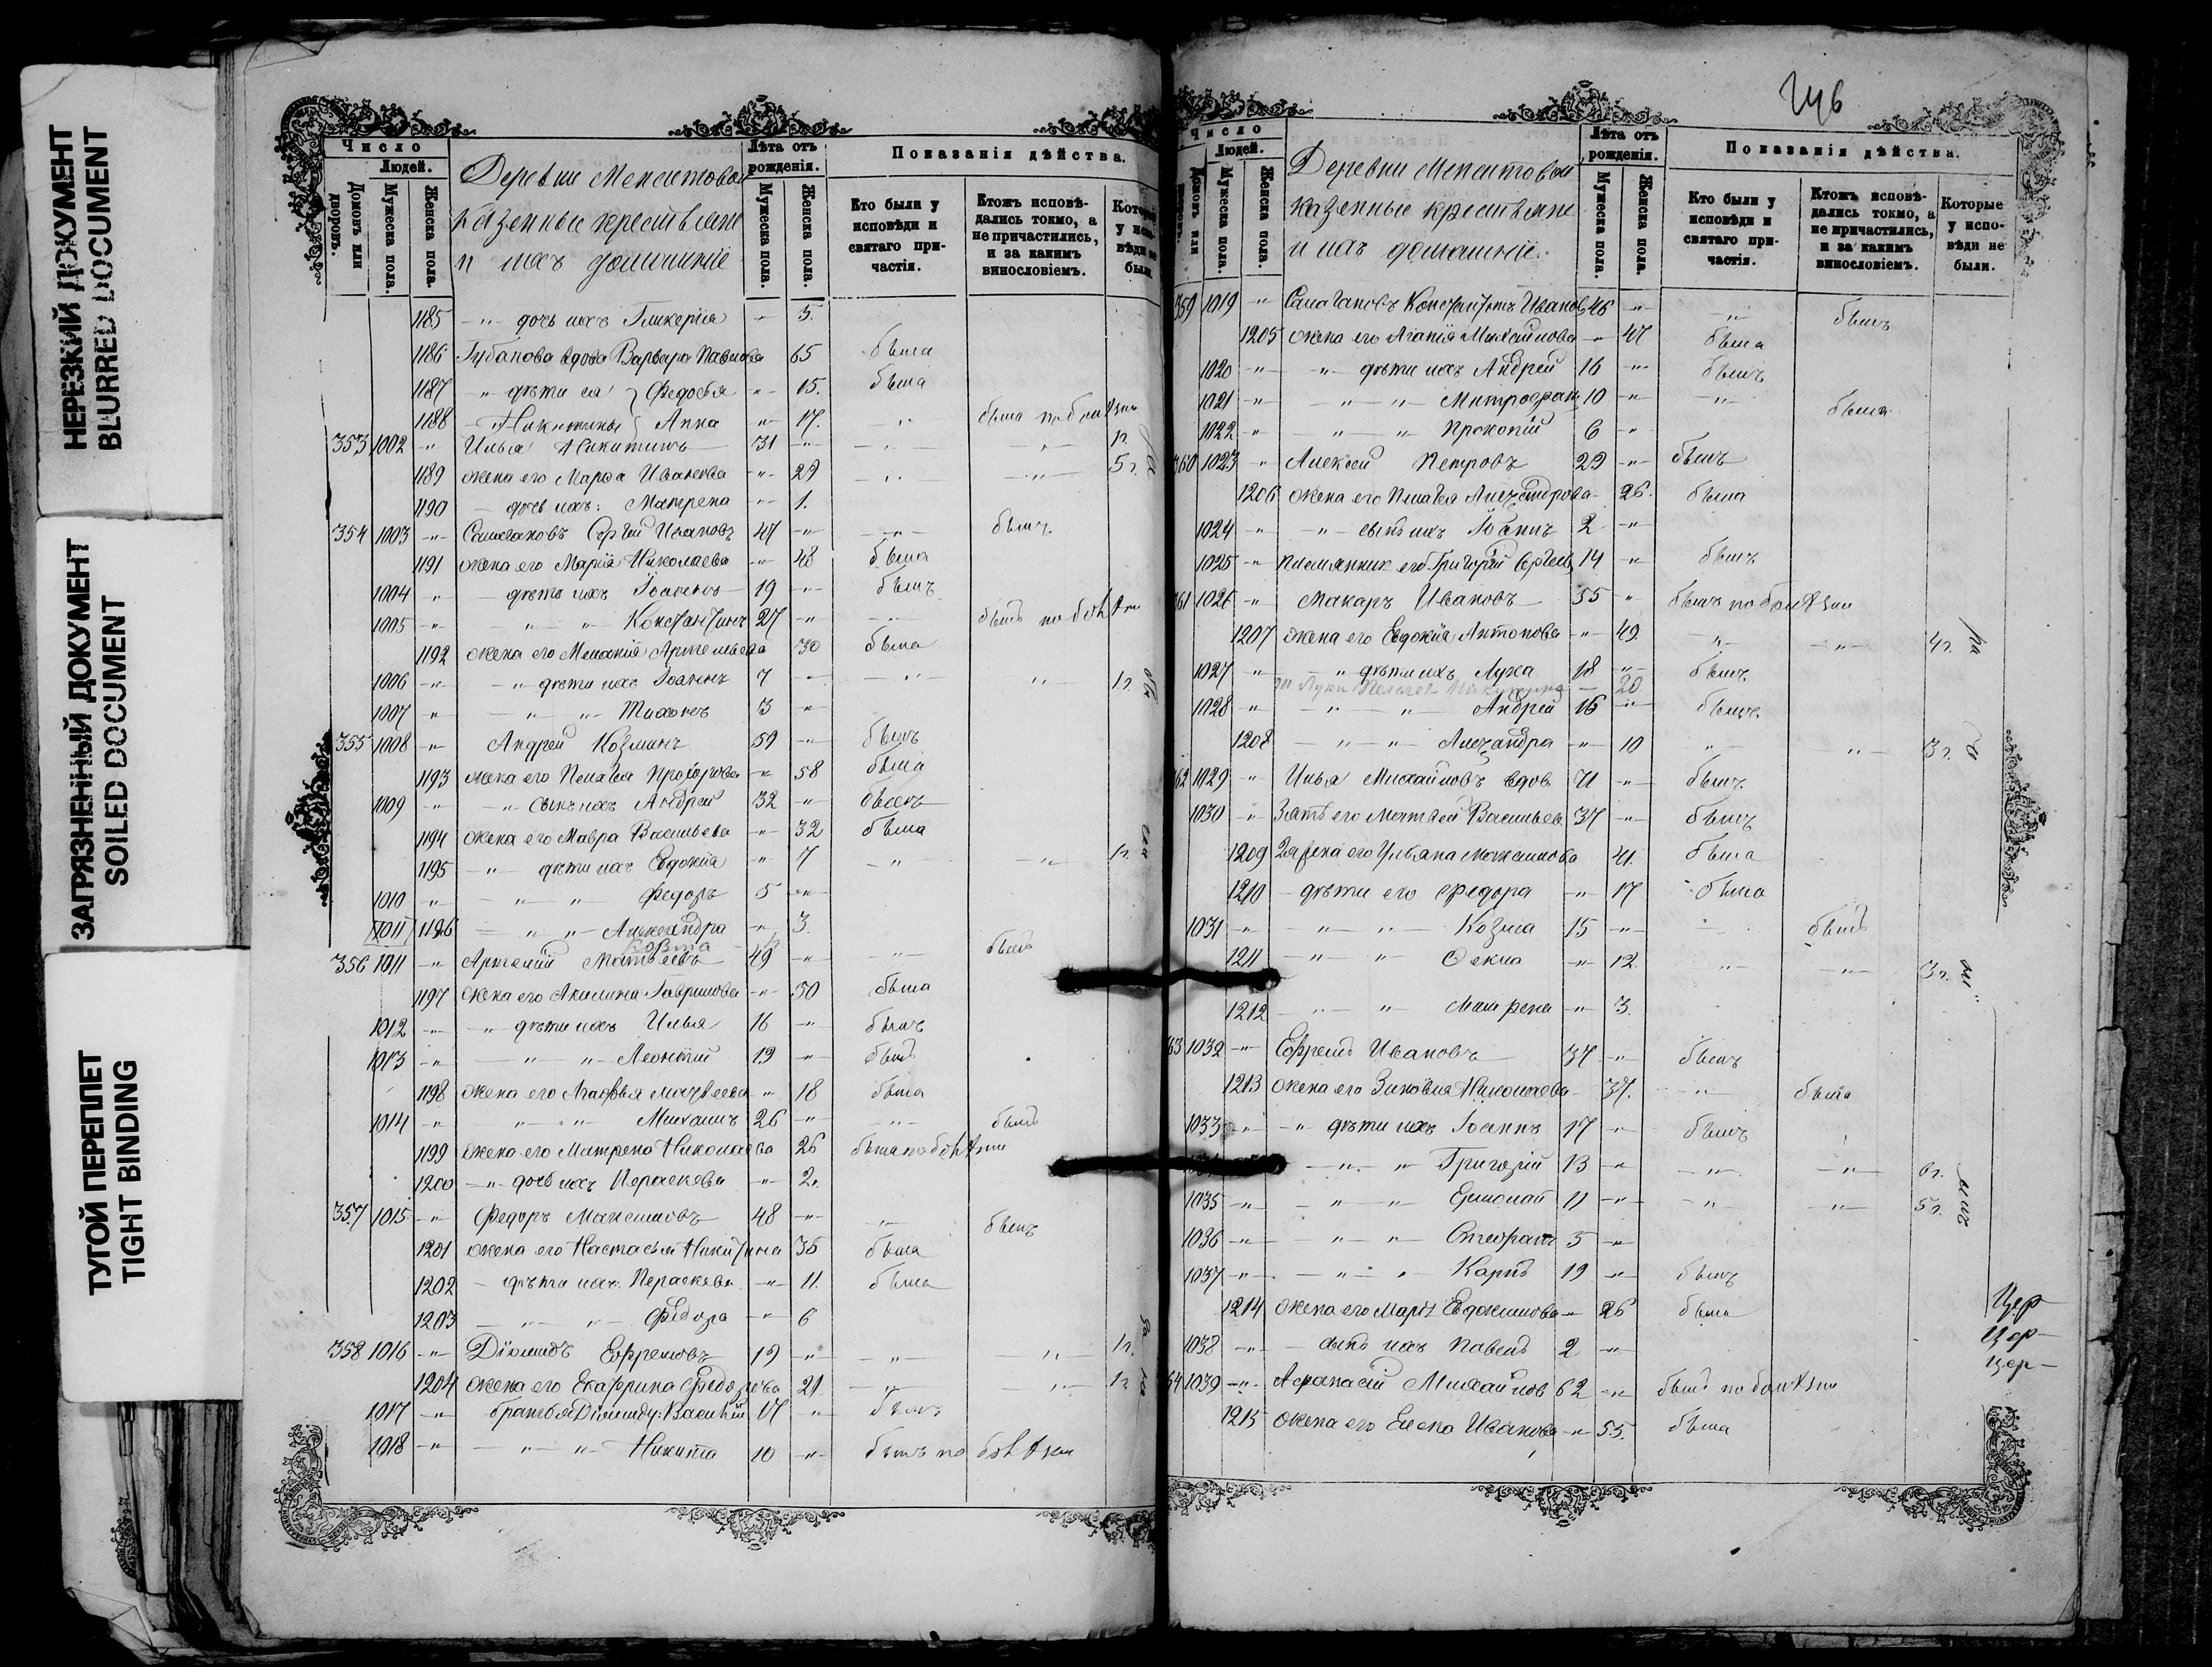 НЕРЕЗКИЙ ДОКУМЕНТ
BLURRED DOCUMENT
ЗАГРЯЗНЕННЫЙ ДОКУМЕНТ
SOILED DOCUMENT
ТУГОЙ ПЕРЕПЛЕТ
TIGHT BINDING
Число
Людей.
Домовъ или дворовъ.
Мужеска пола.
Женска пола.
Деревни
казенные крестьяне
и ихъ домашніе
Лѣта отъ рожденія.
Мужеска пола.
Женска пола.
Показанія дѣйства.
Кто были у исповѣди и святаго причастія.
Ктожъ исповѣдались токмо, а не причастились, и за какимъ винословіемъ.
1185 -"- дочь ихъ Гликерія - 5.
1186 Губанова вдова Варвара Павлова 65 была
1187 " дѣти ея Федосья -"- 15. была
1188 Никитины Анна -"- 17. " была по болѣзни
353 1002 -"- Илья Никитинъ 31 -"-
1189 жена его Марѳа Иванова -"- 29
1190 - дочь ихъ: Матрена -"- 1.
354 1003 -"- Сергей Ивановъ 47 -"- -"- былъ
1191 жена его Марія Николаева -"- 48 была
1004 " - дѣти ихъ Іоаннъ 19 -"- былъ
1005 -"- -"- " Константинъ 27 -"- -"- былъ по болѣзни
1192 жена его Меланія Артемьева 30 была
1006 -"- -"- дѣти ихъ Іоаннъ 7 -"- -"- " 1 г.
1007 " -"- -"- Тихонъ 3 "
355 1008 -"- Андрей Козминъ 59 -"- былъ
1193 жена его Пелагея Прохорова -"- 58 была
1009 -"- -"- сынъ ихъ Андрей 32 -"- былъ
1194 жена его Мавра Васильева -"- 32 была
1195 -"- дѣти ихъ Евдокія " 7 -"- -"- 1 г.
1010 " -"- " Федоръ 5 -"-
1011 1196 -"- " Александра -"- 3.
Козма
356 1011 -"- Артемій Матвѣевъ 49 -"- -"- былъ
1197 жена его Акилина Гаврилова -"- 50 была
1012 -"- -"- дѣти ихъ Илья 16 -"- былъ
1013 -"- -"- " Леонтій 19 -"- былъ
1198 жена его Агафья Матвеева " 18 была
1014 -"- -"- -"- Михаилъ 26 -"- -"- былъ
1199 жена его Матрена Николаева 26 была по болѣзни
1200 -"- дочь ихъ Параскева -"- 2.
357 1015 -"- Федоръ Максимовъ 48 -"- -"- былъ
1201 жена его Настасья Никитина 36 была
1202 - дѣти ихъ Параскева -"- 11. была
1203 -"- -"- Федора -"- 6
358 1016 -"- Діомидъ Ефремовъ 19 -"- -"- -"- 1 г.
1204 жена его Екатерина Федорова 21 -"- -"- 1 г.
1017 -"- братья Діомиду: Василій 17 -"- былъ
1018 -"- -"- -"- Никита 10 -"- былъ по болѣзни
Число
Людей.
Домовъ или дворовъ.
Мужеска пола.
Женска пола.
Деревни
казенные крестьяне
и ихъ домашніе.
Лѣта отъ рожденія.
Мужеска пола.
Женска пола.
Показанія дѣйства.
Кто были у исповѣди и святаго причастія.
Ктожъ исповѣдались токмо, а не причастились, и за какимъ винословіемъ.
Которые у исповѣди не были.
359 1019 -"- Константинъ Ивановъ 46 -"- -"- былъ
1205 жена его Агапія Михайлова - 47 была
1020 -"- -"- дѣти ихъ Андрей 16 -"- былъ
1021 -"- -"- -"- Митрофанъ 10 -"- -"- былъ
1022 -"- -"- " Прокопій 6 -"-
360 1023 " Алексей Петровъ 29 -"- былъ
1206 жена его Пелагея Александрова - 26. была
1024 " -"- сынъ ихъ Іоаннъ 2 -"-
1025 -"- племянник его Григорій Сергеевъ 14 " былъ
361 1026 " Макаръ Ивановъ 55 " былъ по болѣзни
1207 жена его Евдокія Антонова -"- 49 -"- -"- 4 г.
1027 " -"- дѣти ихъ Лука 18 -"- былъ
20
1028 " -"- " Андрей 16 -"- былъ
1208 -"- -"- Александра -"- 10 " " 3 г.
362 1029 " Илья Михайловъ вдов 71 -"- былъ
1030 " Зять его Матвѣй Васильев 37 -"- былъ
1209 2я жена его Ульяна Максимова 41. была
1210 - дѣти его Федора -"- 17 была
1031 -"- -"- -"- Козма 15 -"- былъ
1211 -"- " Ѳекла -"- 12. -"- -"- 3 г.
1212 -"- " Матрена -"- 3.
363 1032 -"- Ефремъ Ивановъ 37 -"- былъ
1213 жена его Зиновія Николаева - 37. -"- была
1033 -"- -"- дѣти ихъ Іоаннъ 17 -"- былъ
-"- " Григорій 13 -"- -"- -"- 6 г.
1035 -"- -"- " Ермолай 11 -"- -"- -"- 5 г.
1036 -"- -"- " Стефанъ 5 -"-
1037 -"- -"- " Карпъ 19 -"- былъ
1214 жена его Марѳа Евдокимова -"- 26 была
1038 -"- - сынъ ихъ Павелъ 2 -"-
364 1039 -"- Афанасій Михайлов 62 -"- былъ по болѣзни
1215 жена его Елена Иванова -"- 55. была